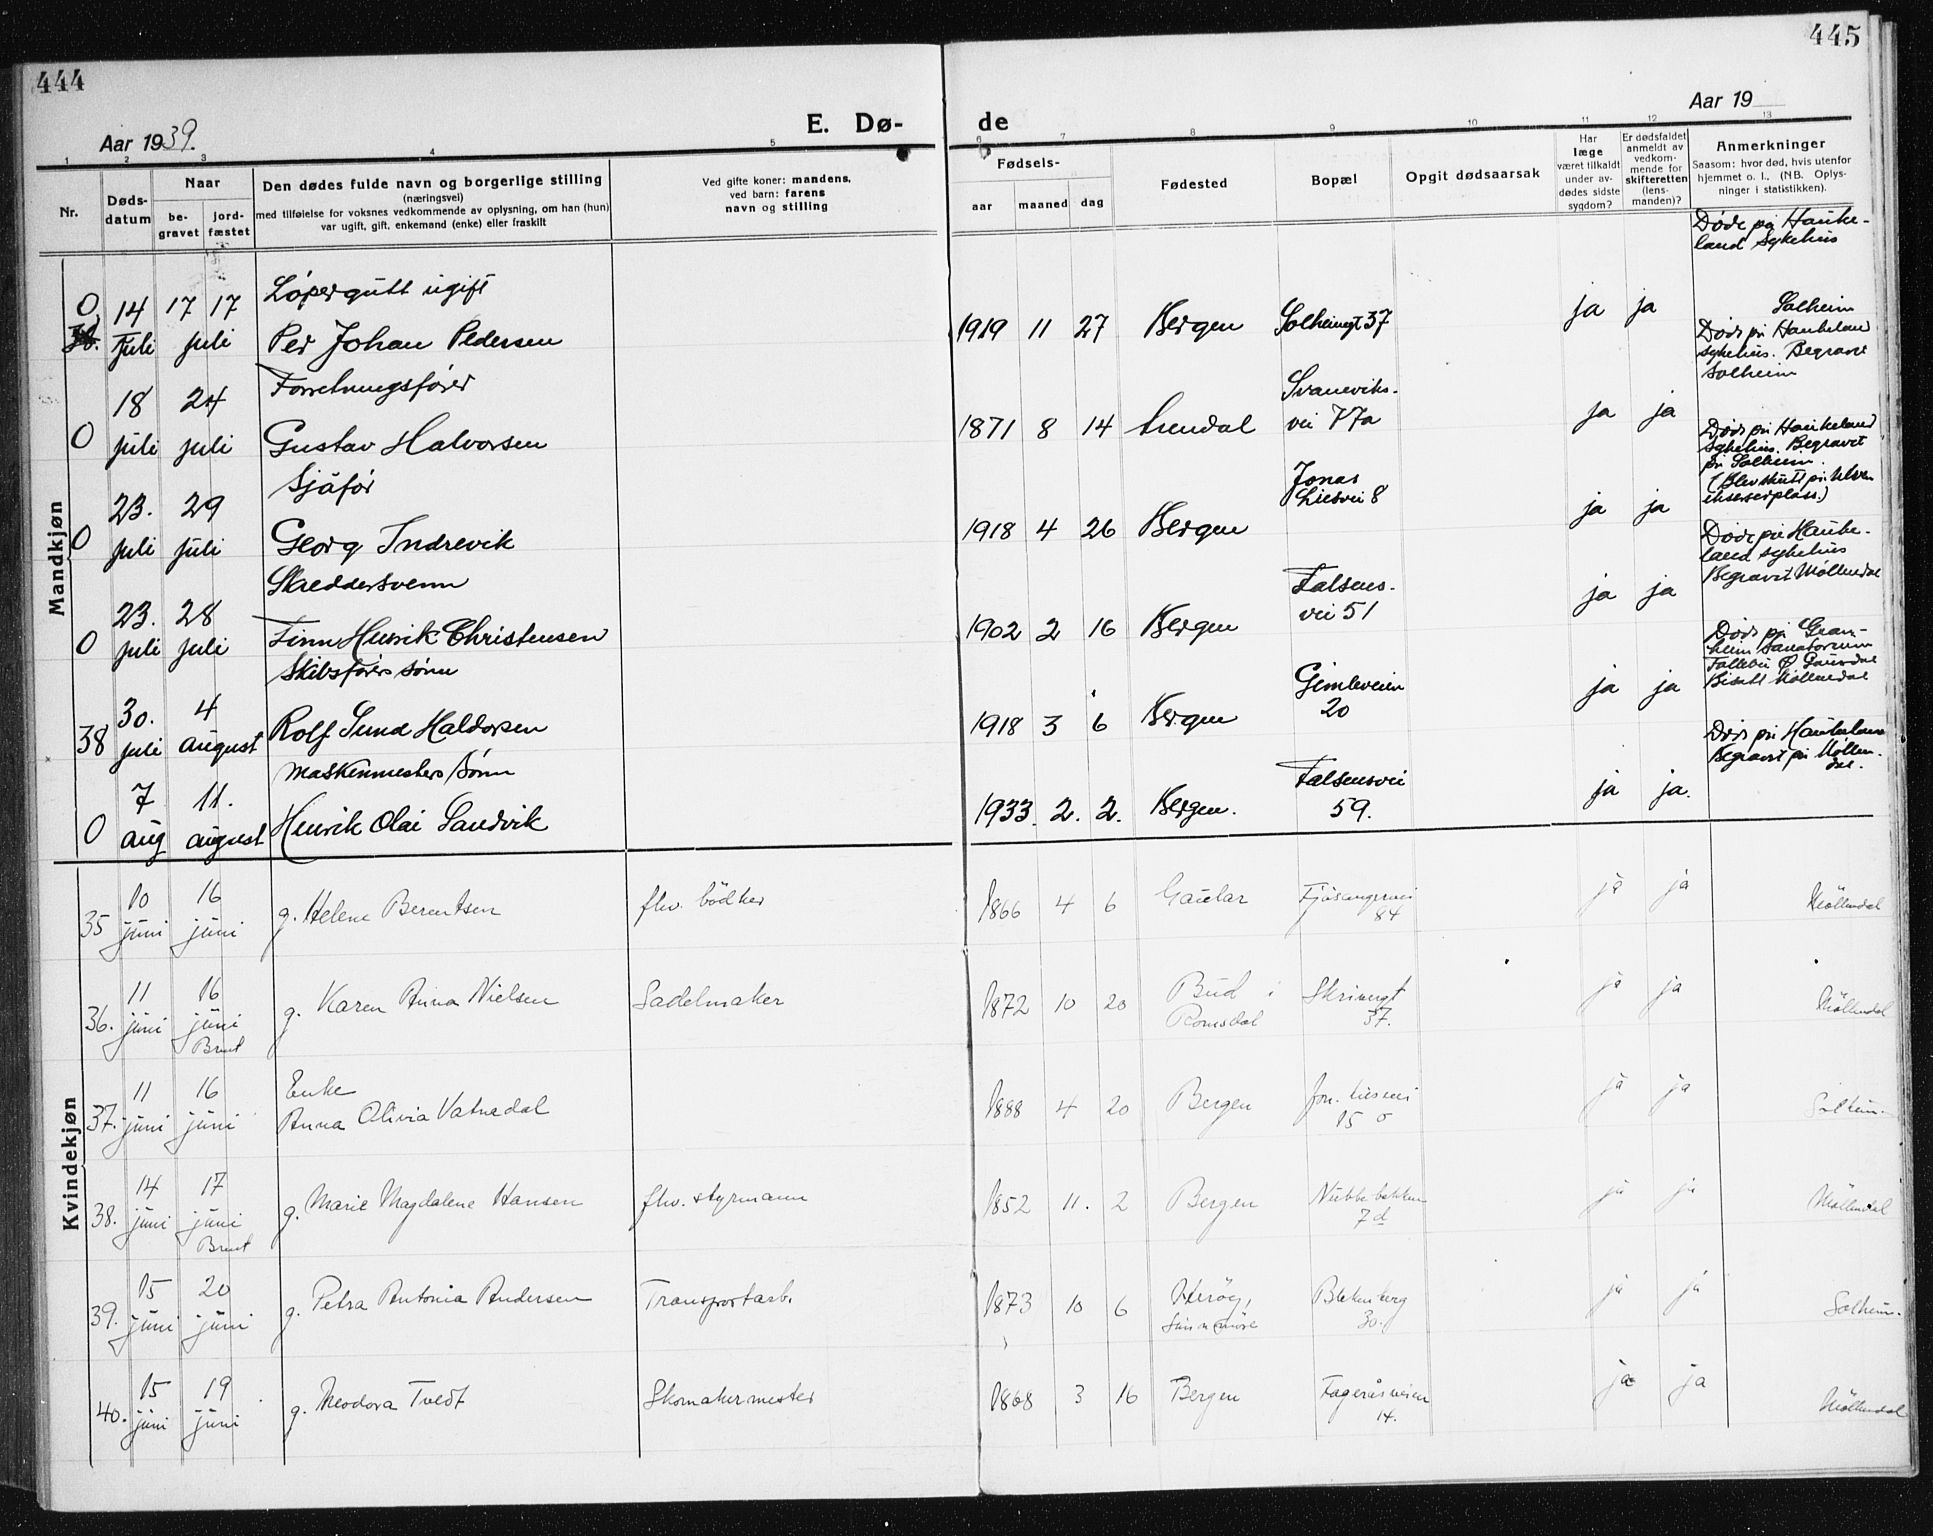 444
445
Aar 1939.
E. Dø-
de
Aar 19
1 2 3 4 5
7 8 9 10 11 12 13
Nr.
Døds-
datum
Naar
be-
gravet
jord-
fæstet
Den dødes fulde navn og borgerlige stilling
(næringsvei)
med tilføielse for voksnes vedkommende av oplysning, om han (hun)
var ugift, gift, enkemand (enke) eller fraskilt
Ved gifte koner: mandens,
ved barn: farens
navn og stilling
Fødsels-
aar maaned dag
Fødested
Bopæl
Opgit dødsaarsak
Har
læge
været tilkaldt
under av-
dødes sidste
sygdom?
Er dødsfaldet
anmeldt av
vedkom-
mende for
skifteretten
(lens-
manden)?
Anmerkninger
Saasom: hvor død, hvis utenfor
hjemmet o. l., (NB. Oplys-
ninger i statistikken).
Mandkjøn
0 14 17 17 Løpergutt ugift
juli juli Per Johan Pedersen
1919 11 27 Bergen Solheimgt 37 ja ja
Døde på Hauke-
land Sykehus
Solheim
18 24 Forretningsfører
0 juli juli Gustav Halvorsen
1871 8 14 Arendal Svaneviks-
vei 77a ja ja
Døde på Haukeland
sykehus. Begravet
Solheim
23. 29 Sjåfør
0 juli juli Georg Indrevik
1918 4 26 Bergen Jonas
Liesvei 8 ja ja
Døde på Haukeland
Sykehus. Begravet
på Solheim.
(Blev skutt på Ulven
ekserserplass.)
23. 28 Skreddersvenn
0 juli juli Finn Henrik Christensen
1902 2 16 Bergen Falsens-
vei 51 ja ja
Døde på Hauke-
land sykehus
Begravet Møllendal
30. 4 Skibsførers sønn
38 juli august Rolf Sund Haldorsen
1918 3 6 Bergen Gimleveien
20 ja ja
Døde på Gran-
heim Sanatorium
Follebu Ø. Gausdal
Bisatt Møllendal
7 11. Maskinmesters sønn
0 aug august Henrik Olai Sandvik
1933. 2. 2. Bergen. Falsensvei
59. ja ja.
Døde på Haukeland
Begravet på Møllen-
dal.
Kvindekjøn
35 10 juni 16 juni g. Helene Berentsen fhv. bödker
1866 4 6 Gaular Fjøsangervei
84 ja ja Möllendal
36. 11 juni 16 juni Brent g. Karen Anna Nielsen Sadelmaker
1872 10 20 Bud i
Romsdal Skivergt
37. ja ja Möllendal
37. 11 juni 16 juni Enke
Anna Olivia Vatnedal
1888 4 20 Bergen Jon. Liesvei
15 ja ja Solheim.
38. 14 juni 17 juni Brent g. Marie Magdalene Hansen fhv. styrmann
1852 11. 2 Bergen Nubbebakken
7d ja ja Möllendal
39. 15 juni 20 juni g. Petra Antonia Andersen Transportarb.
1873 10 6 Herøy,
Sunnmöre Blekenberg
30. ja ja Solheim.
40. 15 juni 19 juni g. Theodora Tvedt Skomakermester
1868 3 16 Bergen Fageråsveien
14. ja ja Möllendal